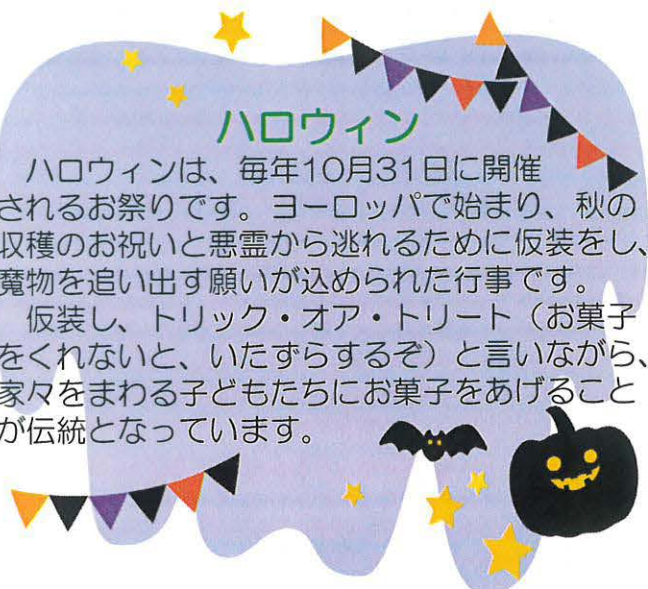 ハロウィン
ハロウィンは、毎年10月31日に開催
されるお祭りです。ヨーロッパで始まり、秋の
収穫のお祝いと悪霊から逃れるために仮装をし、
魔物を追い出す願いが込められた行事です。
仮装し、トリック・オア・トリート（お菓子
をくれないと、いたずらするぞ）と言いながら、
家々をまわる子どもたちにお菓子をあげること
が伝統となっています。